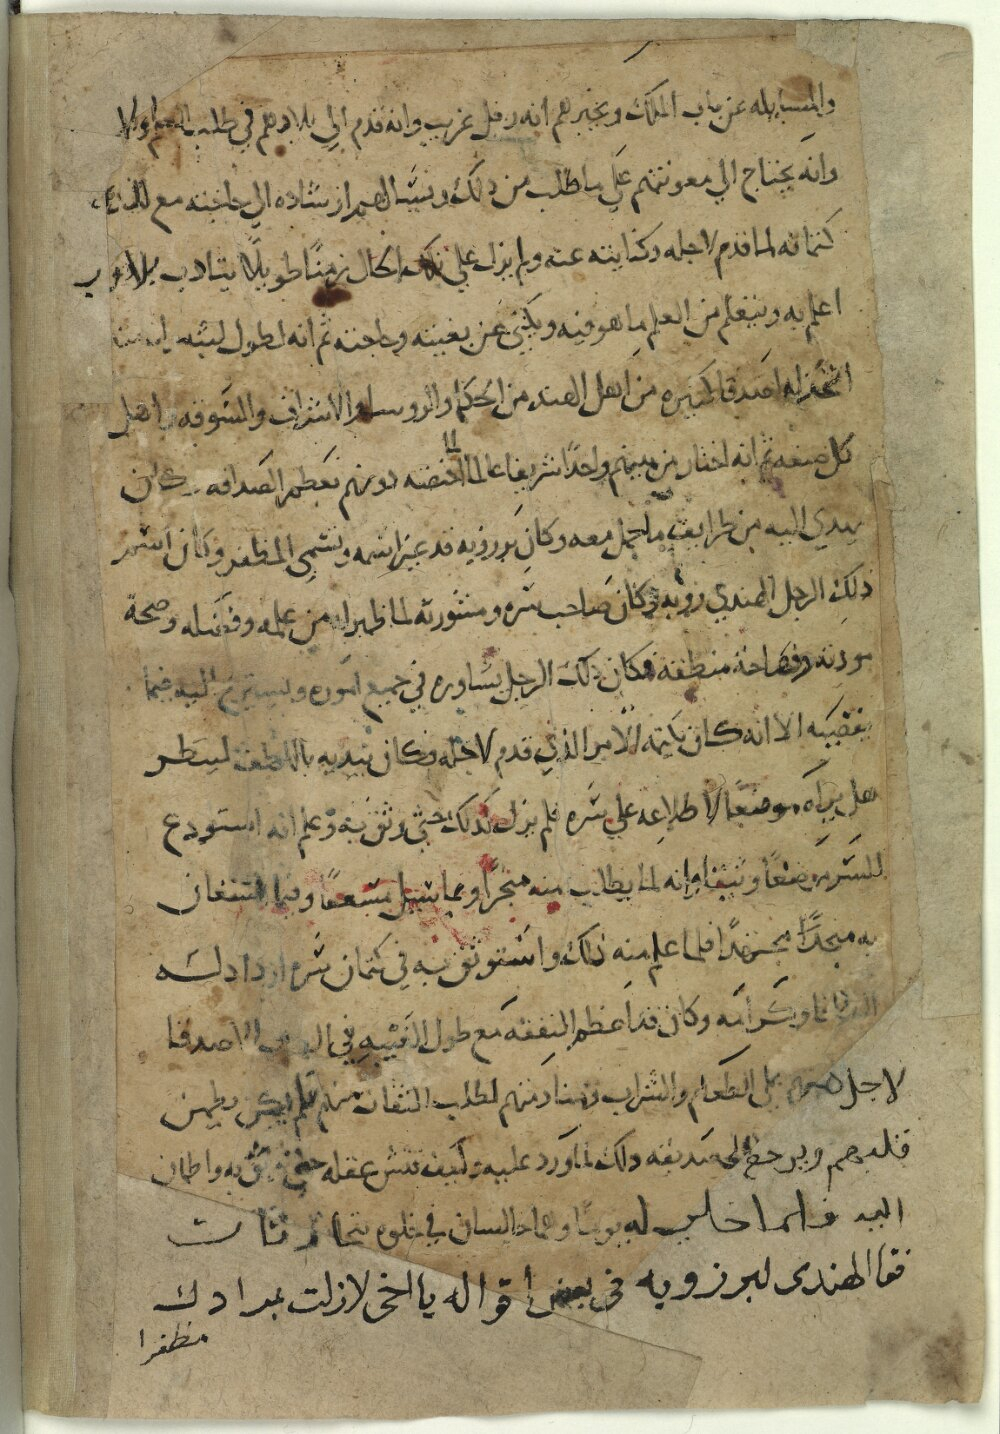 والمسايله عن باب الملك ويخبرهم انه رجل غريب وانه قدم الي بلادهم في طلب العلم
وانه يحتاج الي معونتهم علي ما طلب من ذلك ويسالهم ارشاده الي حاجته مع
كتمانه لما قدم لاجله وكنايته عنه ولم يزل علي تلك الحال زمنًا طويلًا يتادب بلا ادب
اعلم به ويتعلم من العلم ما هو فيه ويكني عن بغيته وحاجته ثم انه لطول لبثه
اتخذ له اصدقا كثيره من اهل الهند من الحكما والروسا والاشراف والسوقه واهل
كل صنعه ثم انه اختار من بينهم واحدًا شريفا عالما اختصه دونهم بعظم الصداقه وكان
يهدي اليه من طرايف ما حمل معه وكان برزويه قد غير اسمه وتسمي المظفر وكان اسم
ذلك الرجل الهندي رويه وكان صاحب سره ومشورته لما ظهر له من علمه وفضله وصحة
مودته وفصاحة منطقه وكان ذلك الرجل يشاوره في جميع اموره ويستريح اليه فيما
الا انه كان يكتمه الامر الذي قدم لاجله وكان يبديه بالملاطفه لينظر
هل يراه موضعًا لاطلاعه علي سره فلم يزل كذلك حتي وثق به وعلم انه استودع
للسر موضعًا وانه لما يطلب منه منجزًا وبما سيل مشفعًا وفيما استعان
به مجدًا مجتهدًا فلما علم منه ذلك واستوثق به في كتمان سره ازداد له
وكرامه وكان قد اعظم النفقه مع طول الغيبه في الاصدقا
لاجل علي الطعام والشراب زمنا منهم لطلب الثقات منهم فلم يكن يطمين
قلبه وبرجع الي صديقه ذلك لما ورد عليه وكيف فتش عقله حتي وثق به واطمان
اليه فلما خلي له يومًا وهما جالسان في خلوه
فقال الهندي لبرزويه في بعض اقواله يا اخي لا زلت بمرادك
مظفرا